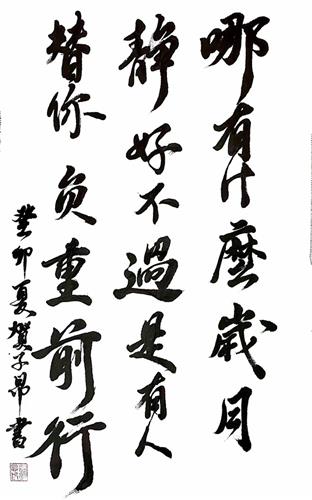 哪有什麽歲月
静好不過是有人
替你负重前行
癸卯夏賀子昂書